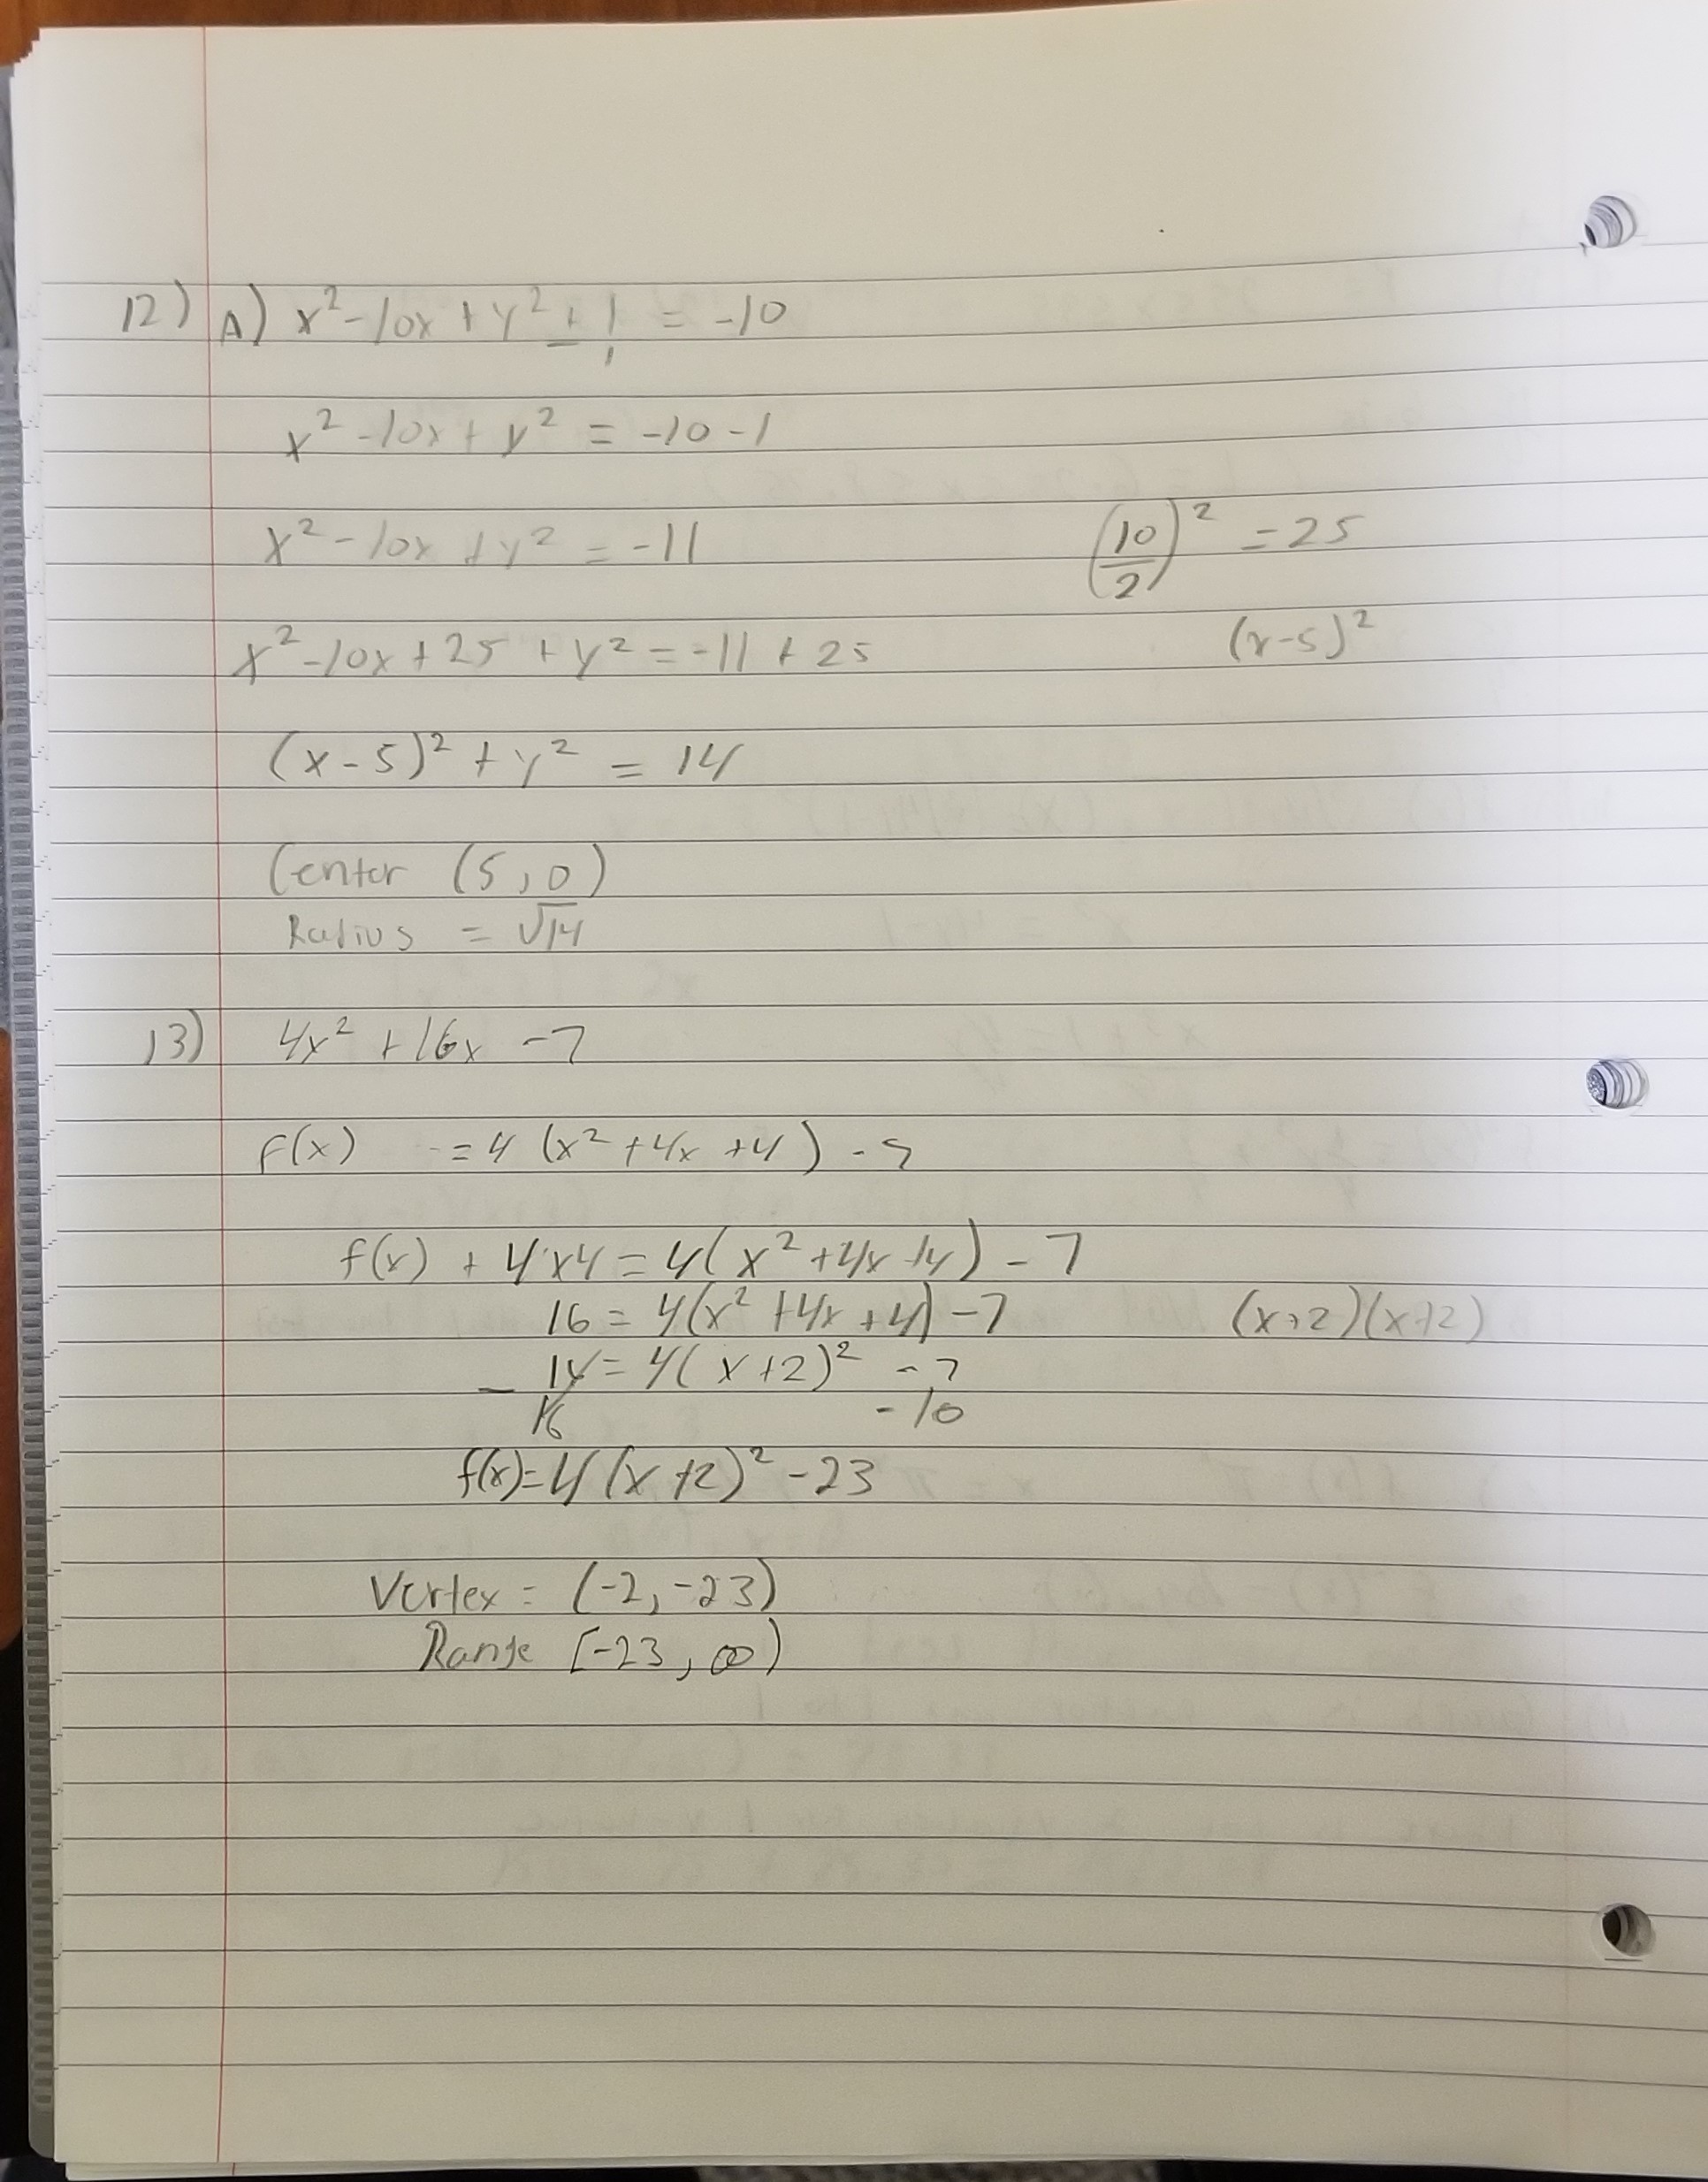 12) A) x² - 10x + y² + 1 = -10
- 1
x² - 10x + y² = -10 - 1
x² - 10x + y² = -11 (10/2)² = 25
x² - 10x + 25 + y² = -11 + 25 (x-5)²
(x - 5)² + y² = 14
Center (5, 0)
Radius = √14
13) 4x² + 16x - 7
f(x) = 4 (x² + 4x + 4) - 7
f(x) + 4x4 = 4(x² + 4x + 4) - 7
16 = 4(x² + 4x + 4) - 7 (x+2)(x+2)
- 16 = 4(x + 2)² - 7
16 - 10
f(x) = 4(x + 2)² - 23
Vertex = (-2, -23)
Range [-23, ∞)